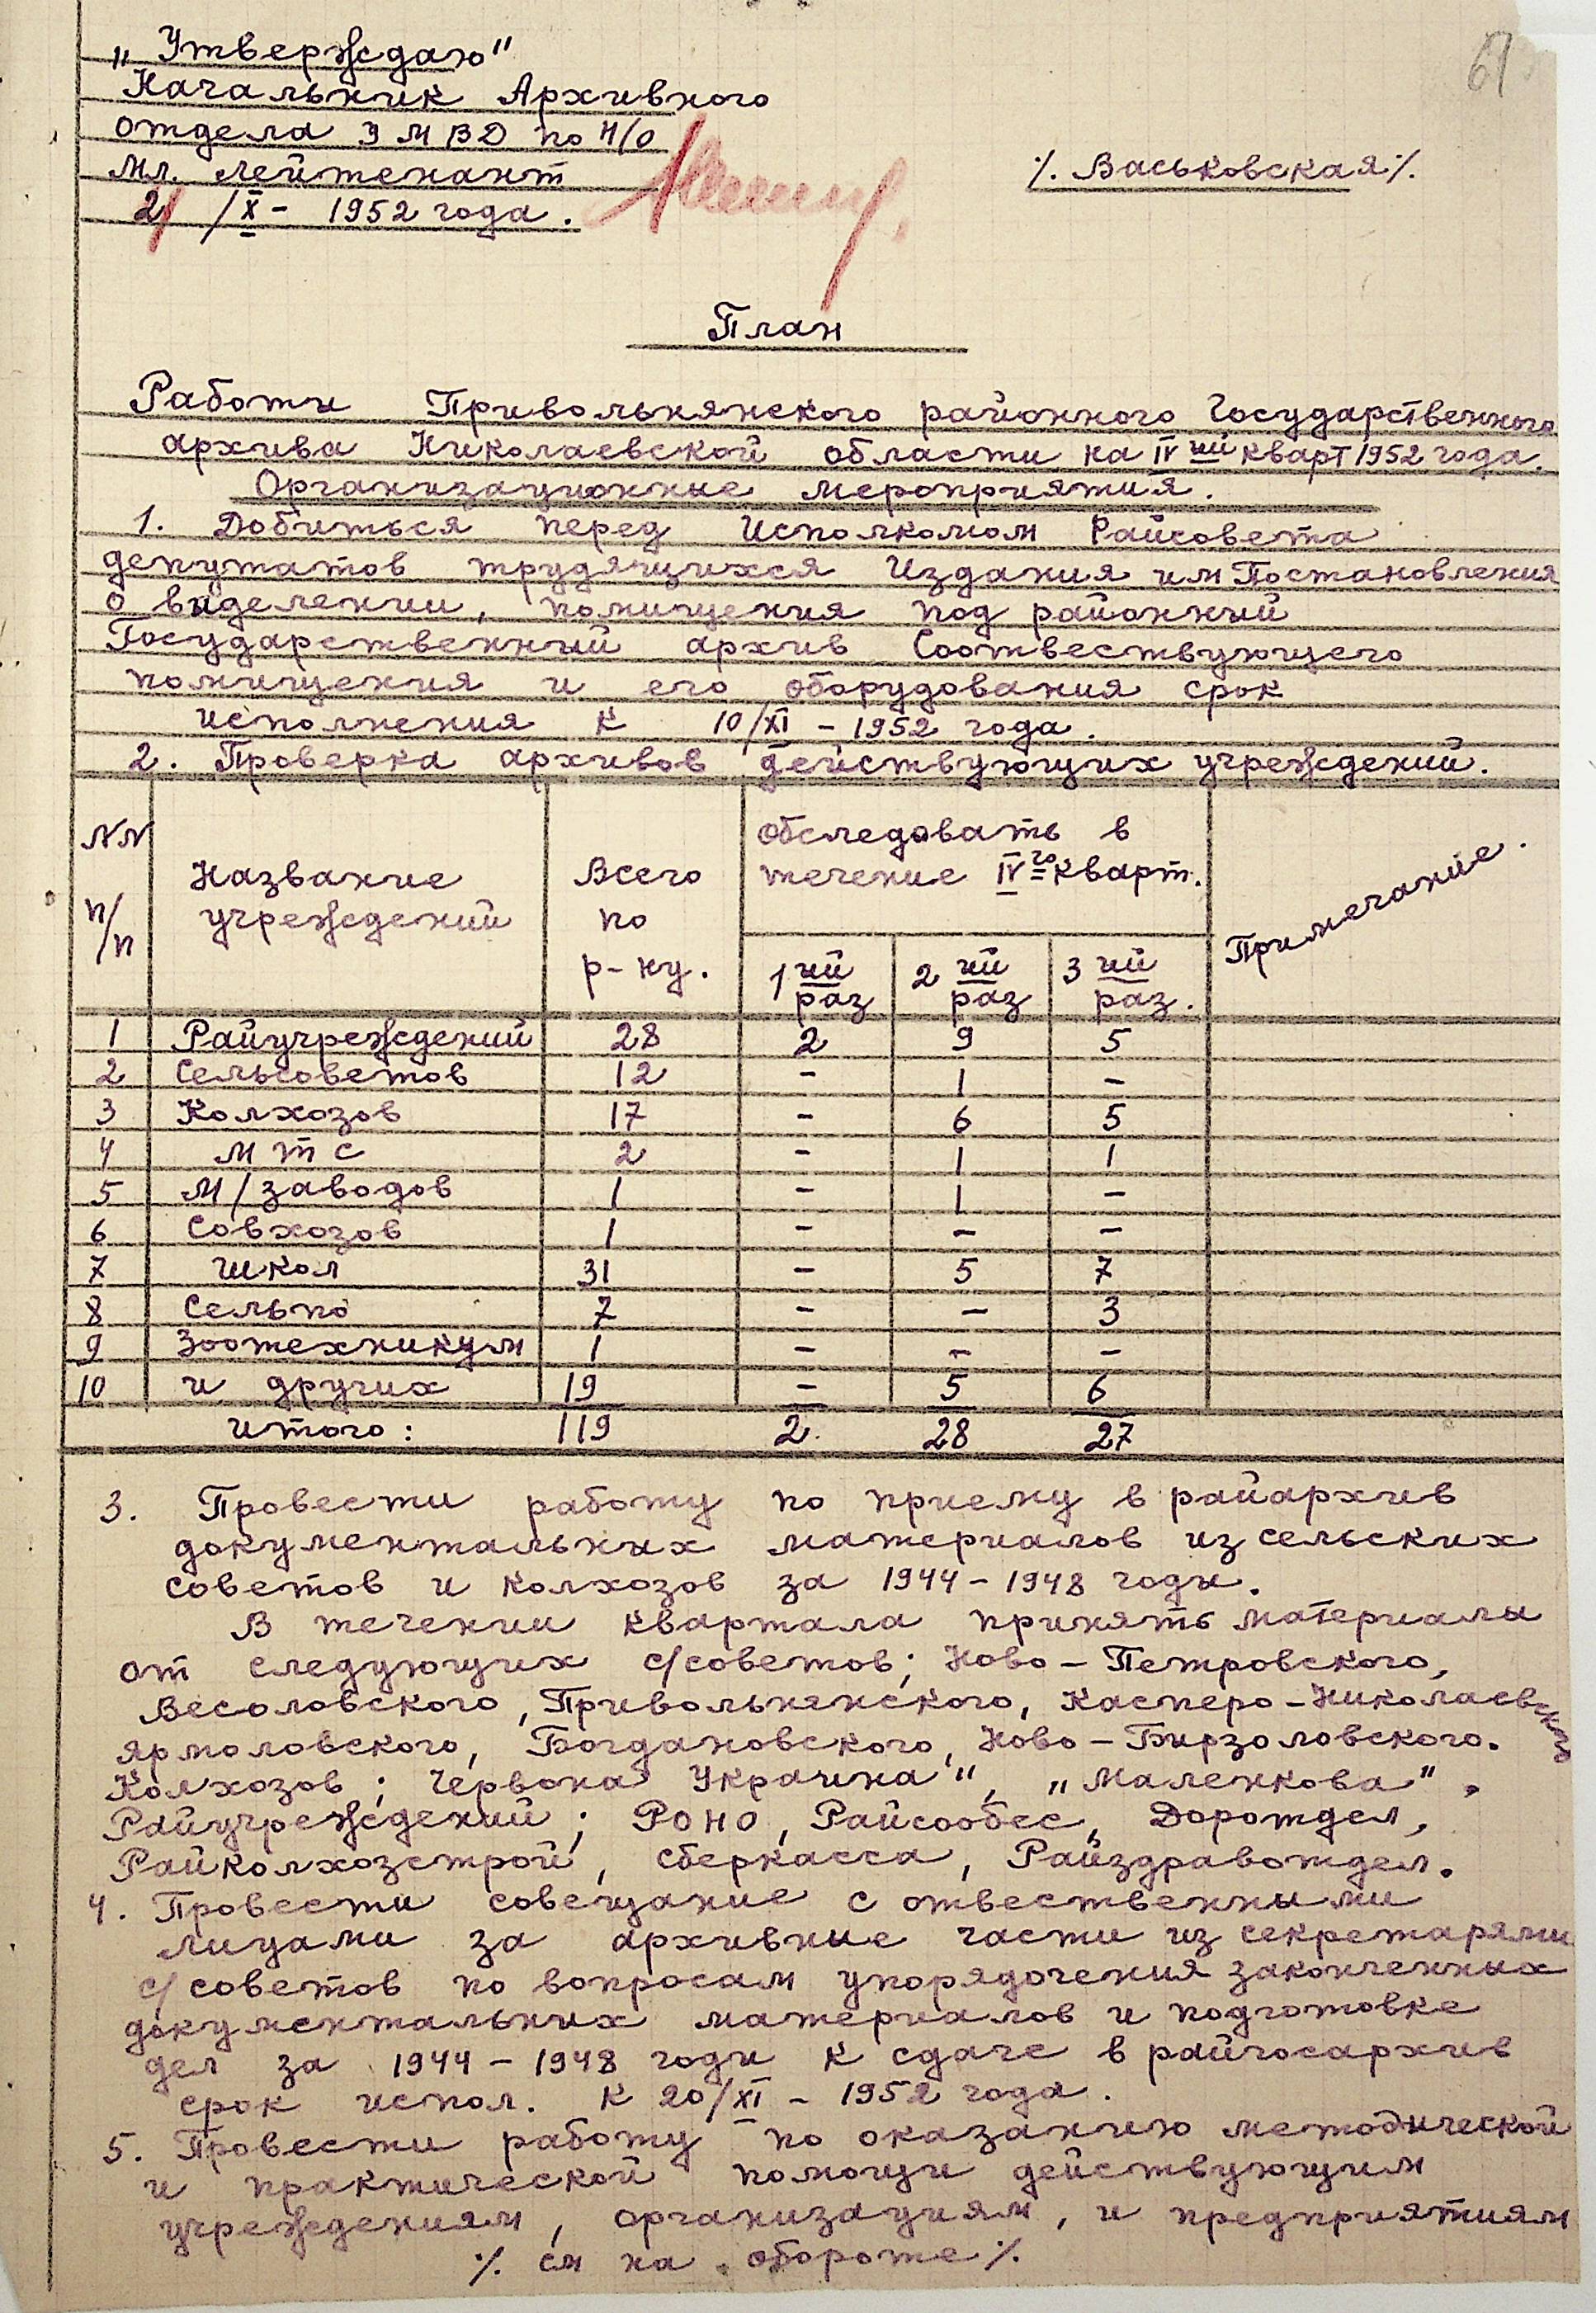 61
„Утверждаю"
Начальник Архивного
отдела УМВД по Н/О
мл. лейтенант ⁒ Васьковская ⁒
21/X - 1952 года.
План
Работы Привольнянского районного Государственного
архива Николаевской области на IV ый кварт 1952 года.
Организационные мероприятия.
1. Добиться перед Исполкомом Райсовета
депутатов трудящихся Издания им Постановления
о выделении, помищения под районный
Государственный архив Соотвествующего
помищения и его оборудования срок
исполнения к 10/XI - 1952 года.
2. Проверка архивов действующих учреждений.
NN п/п Название учреждений Всего по р-ну. Обследовать в течение IV го кварт. Примечание.
1 ий раз 2 ий раз 3 ий раз.
1 Райучреждений 28 2 9 5
2 Сельсоветов 12 - 1 -
3 Колхозов 17 - 6 5
4 МТС 2 - 1 1
5 М/заводов 1 - 1 -
6 Совхозов 1 - - -
7 Школ 31 - 5 7
8 Сельпо 7 - - 3
9 Зоотехникум 1 - - -
10 и других 19 - 5 6
Итого: 119 2. 28 27
3. Провести работу по приему в райархив
документальных материалов из сельских
советов и колхозов за 1944-1948 годы.
В течении квартала принять материалы
от следующих с/советов; Ново-Петровского,
Весоловского, Привольнянского, Касперо-Николаевского
Ярмоловского, Богдановского, Ново-Бирзоловского.
Колхозов; Червона Украина", „Маленкова".
Райучреждений; РОНО, Райсообес, Доротдел,
Райколхозстрой, сберкасса, Райздравотдел.
4. Провести совещание с отвественными
лицами за архивные части из секретарями
с/советов по вопросам упорядочения законченных
документальных материалов и подготовке
дел за 1944-1948 годы к сдаче в райгосархив
срок испол. к 20/XI - 1952 года.
5. Провести работу по оказанию методической
и практической помощи действующим
учреждениям, организациям, и предприятиям
⁒ см на обороте ⁒